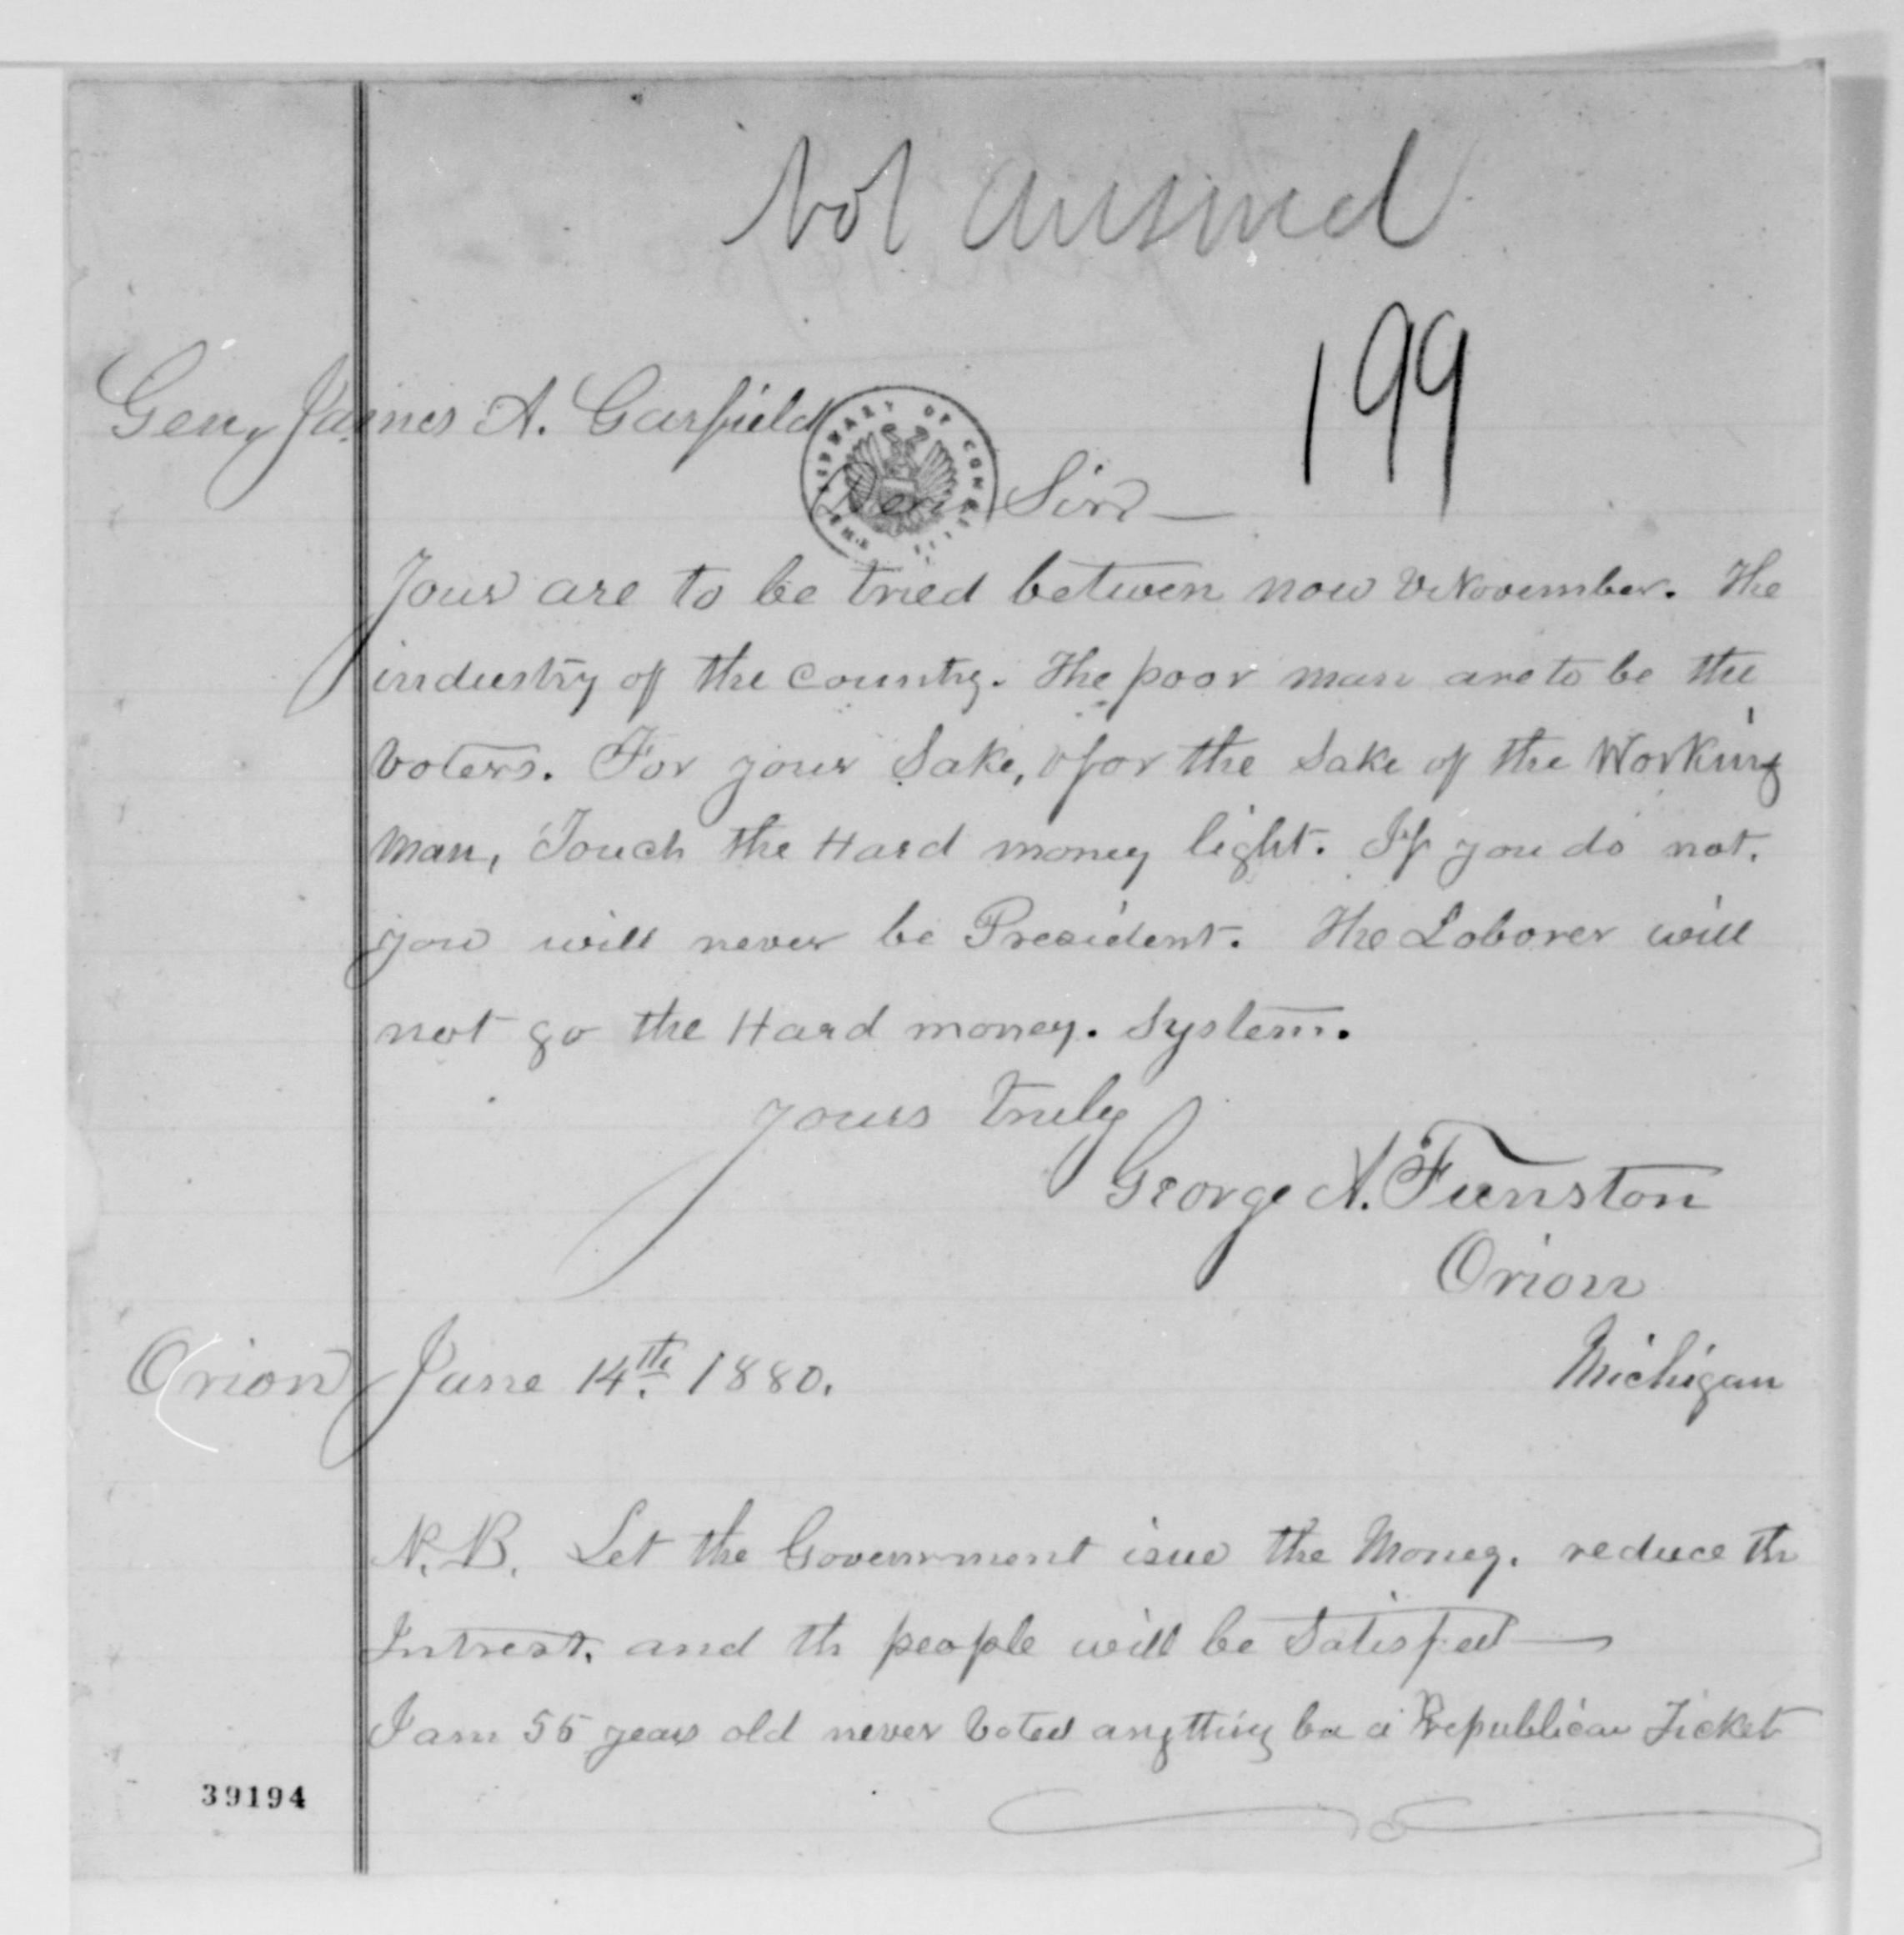 Not Answered
199
Genr James A. Garfield
Dear Sir
THE LIBRARY OF CONGRESS
You are to be tried between now & November. The
industry of the Country. The poor man are to be the
voters. For your Sake, & for the Sake of the Working
man, Touch the Hard money light. If you do not.
you will never be President. The Laborer will
not go the Hard money. System.
yours truly
George A. Funston
Orion
Michigan
Orion June 14th. 1880.
N.B. Let the Government isue the Money. reduce th
Intrest. and th people will be Satisfied
I am 55 years old never voted anything bu a Republican Ticket
39194